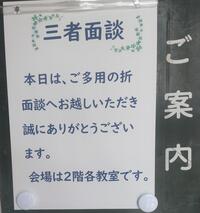 三者面談
本日は、ご多用の折
面談へお越しいただき
誠にありがとうござい
ます。
会場は2階各教室です。
ご案内